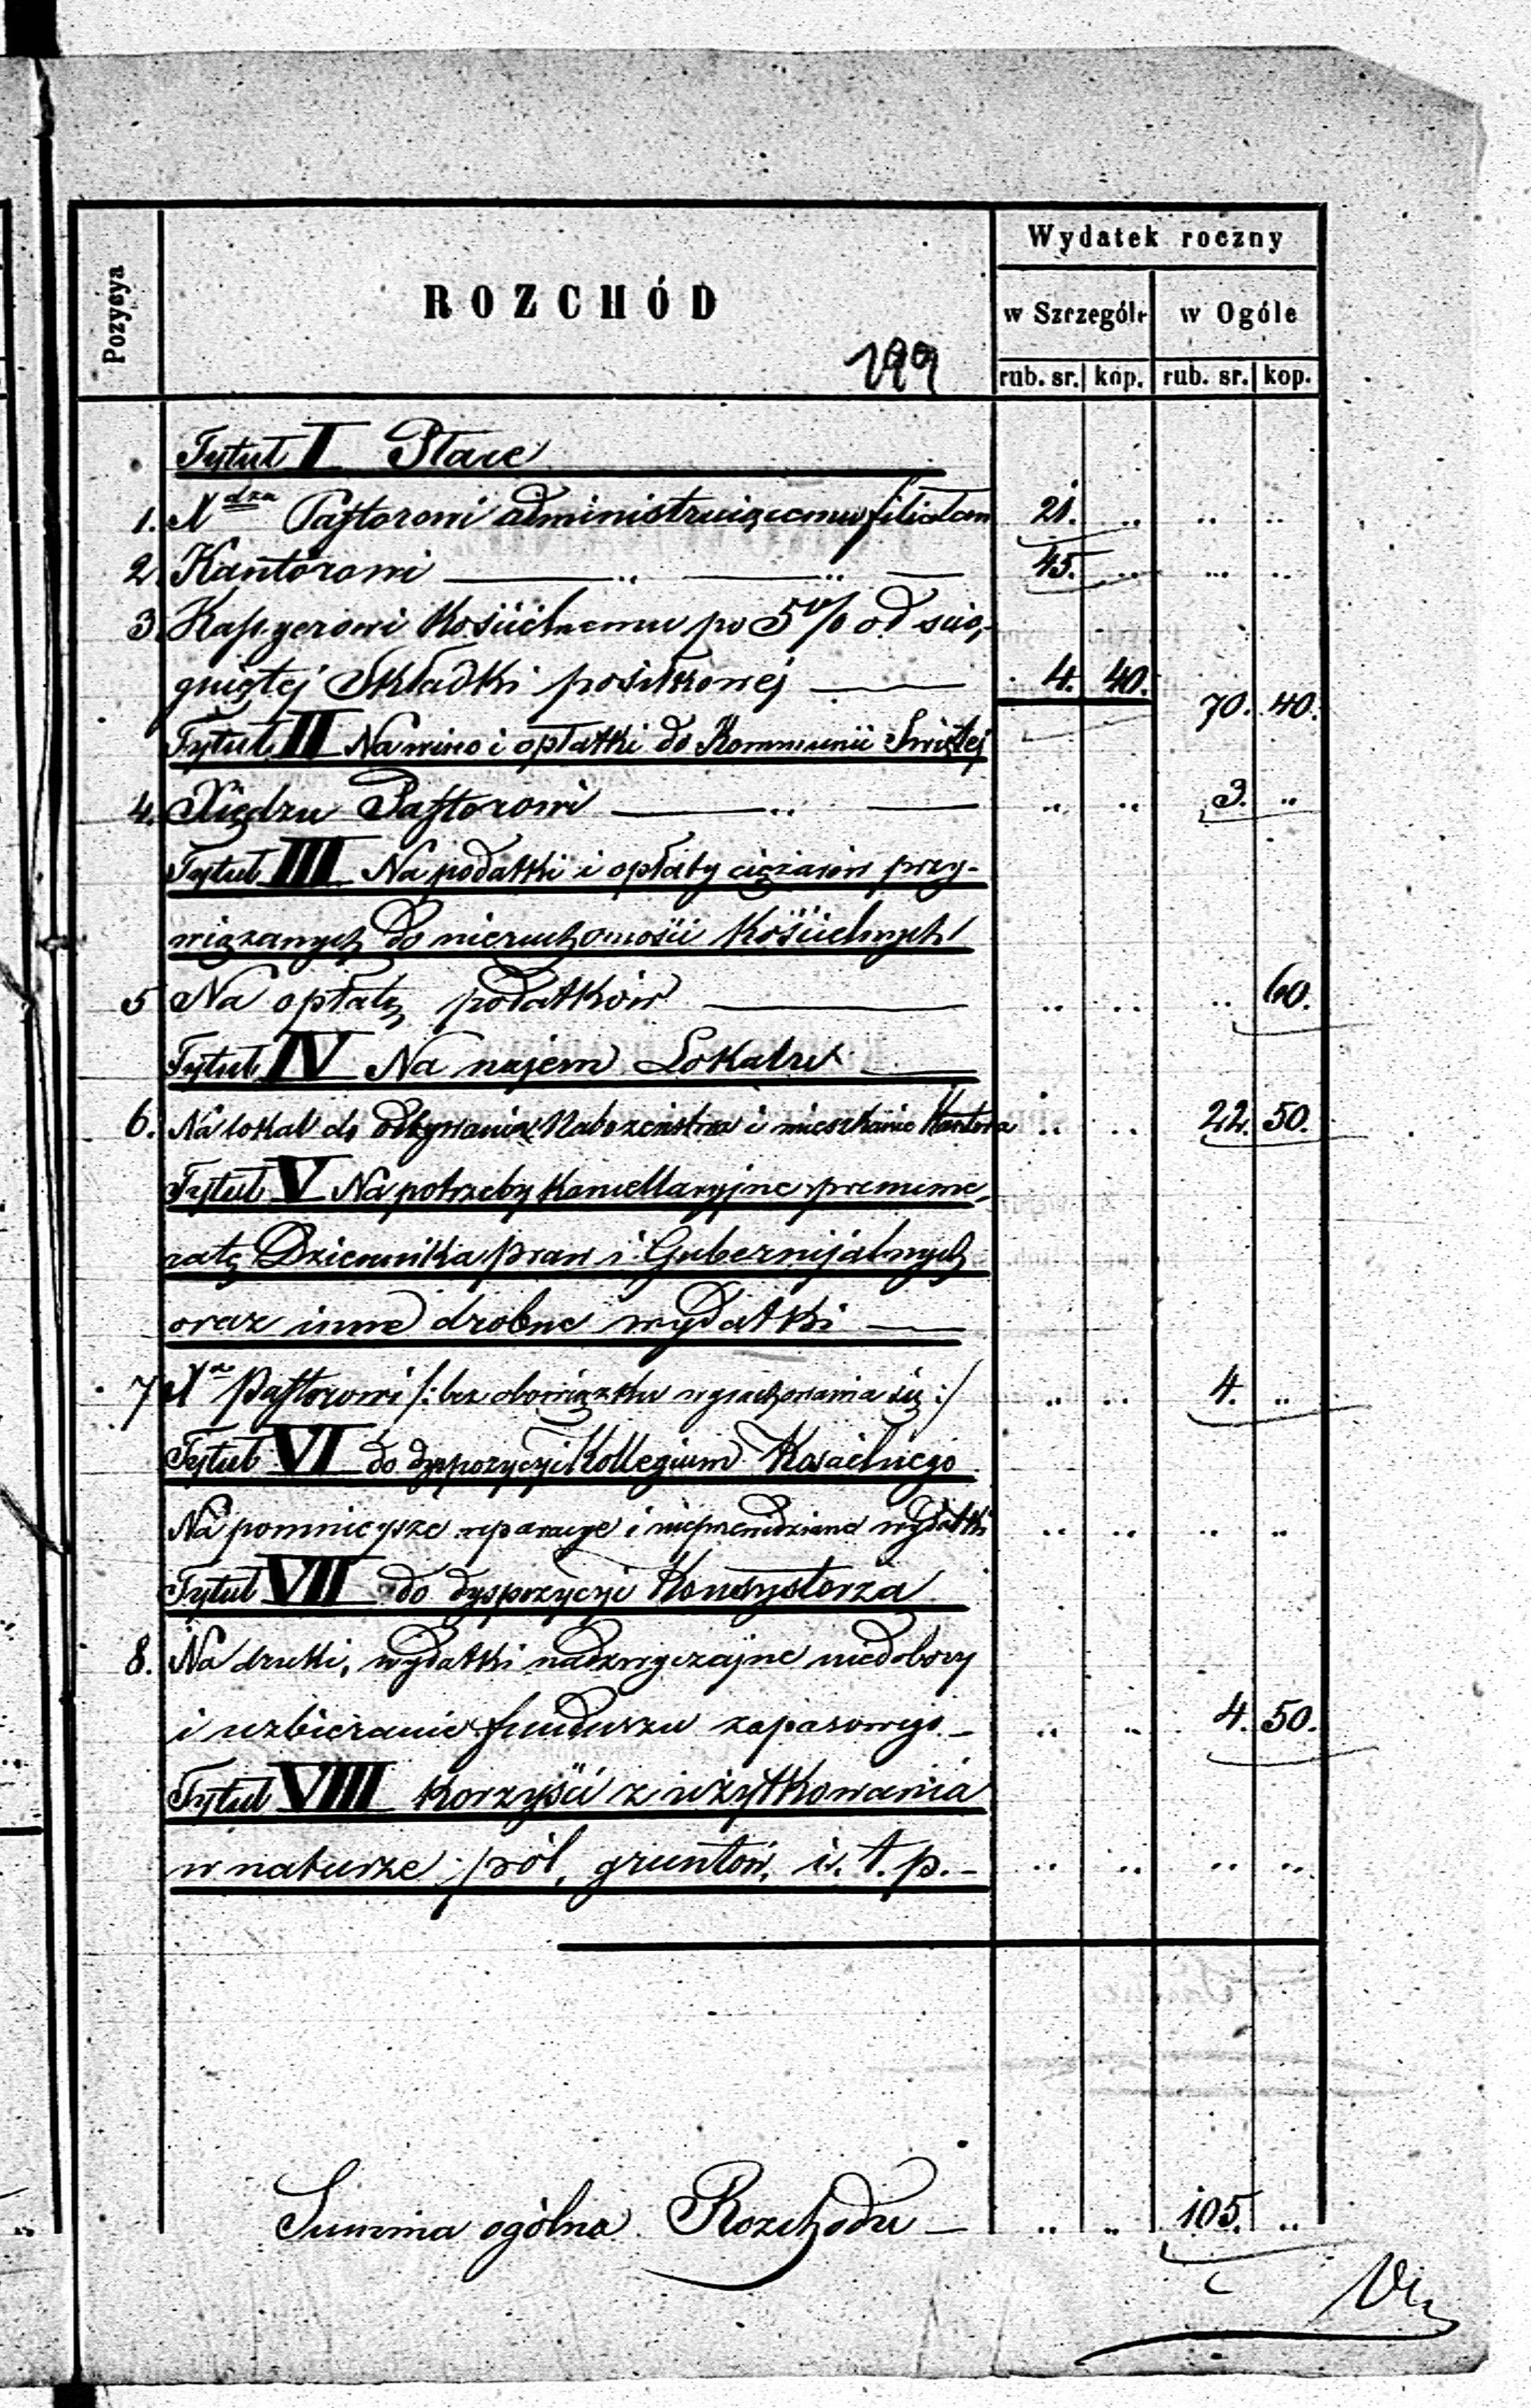 Wydatek roczny
Pozycya
ROZCHÓD
w Szczególe w Ogóle
199
rub. sr. kop. rub. sr. kop.
Tytuł I Płace
1. Xdza Pastorowi administruiącemu filiałem 21. .. .. ..
2. Kantorowi 45. .. .. ..
3. Kassyerowi Kościelnemu po 5% od ścią-
gniętej Składki posiłkowej 4. 40. 70. 40.
Tytuł II Na wino i opłatki do Kommunii Świętej
4. Xiędzu Pastorowi .. .. 3. ..
Tytuł III Na podatki i opłaty ciężarów przy-
wiązanych do nieruchomości Kościelnych
5 Na opłatę podatków .. .. .. 60.
Tytuł IV Na najem Lokalu
6. Na lokal do odbywania Nabożeństwa i mieszkanie Kantora .. .. 22. 50.
Tytuł V Na potrzeby Kancellaryjne prenume-
ratę Dziennika praw i Gubernijalnych
oraz inne drobne wydatki
7 X Pastorowi /: bez obowiązku wyrachowania się :/ .. .. 4. ..
Tytuł VI do dyspozycyi Kollegium Kościelnego
Na pomniejsze reparacye i nieprzewidziane wydatki .. .. .. ..
Tytuł VII do dyspozycyi Konsystorza
8. Na druki, wydatki nadzwyczajne niedobory
i uzbieranie funduszu zapasowego. .. .. 4. 50.
Tytuł VIII Korzyści z użytkowania
w naturze pól, gruntów, i. t. p. .. .. .. ..
Summa ogólna Rozchodu .. .. 105. ..